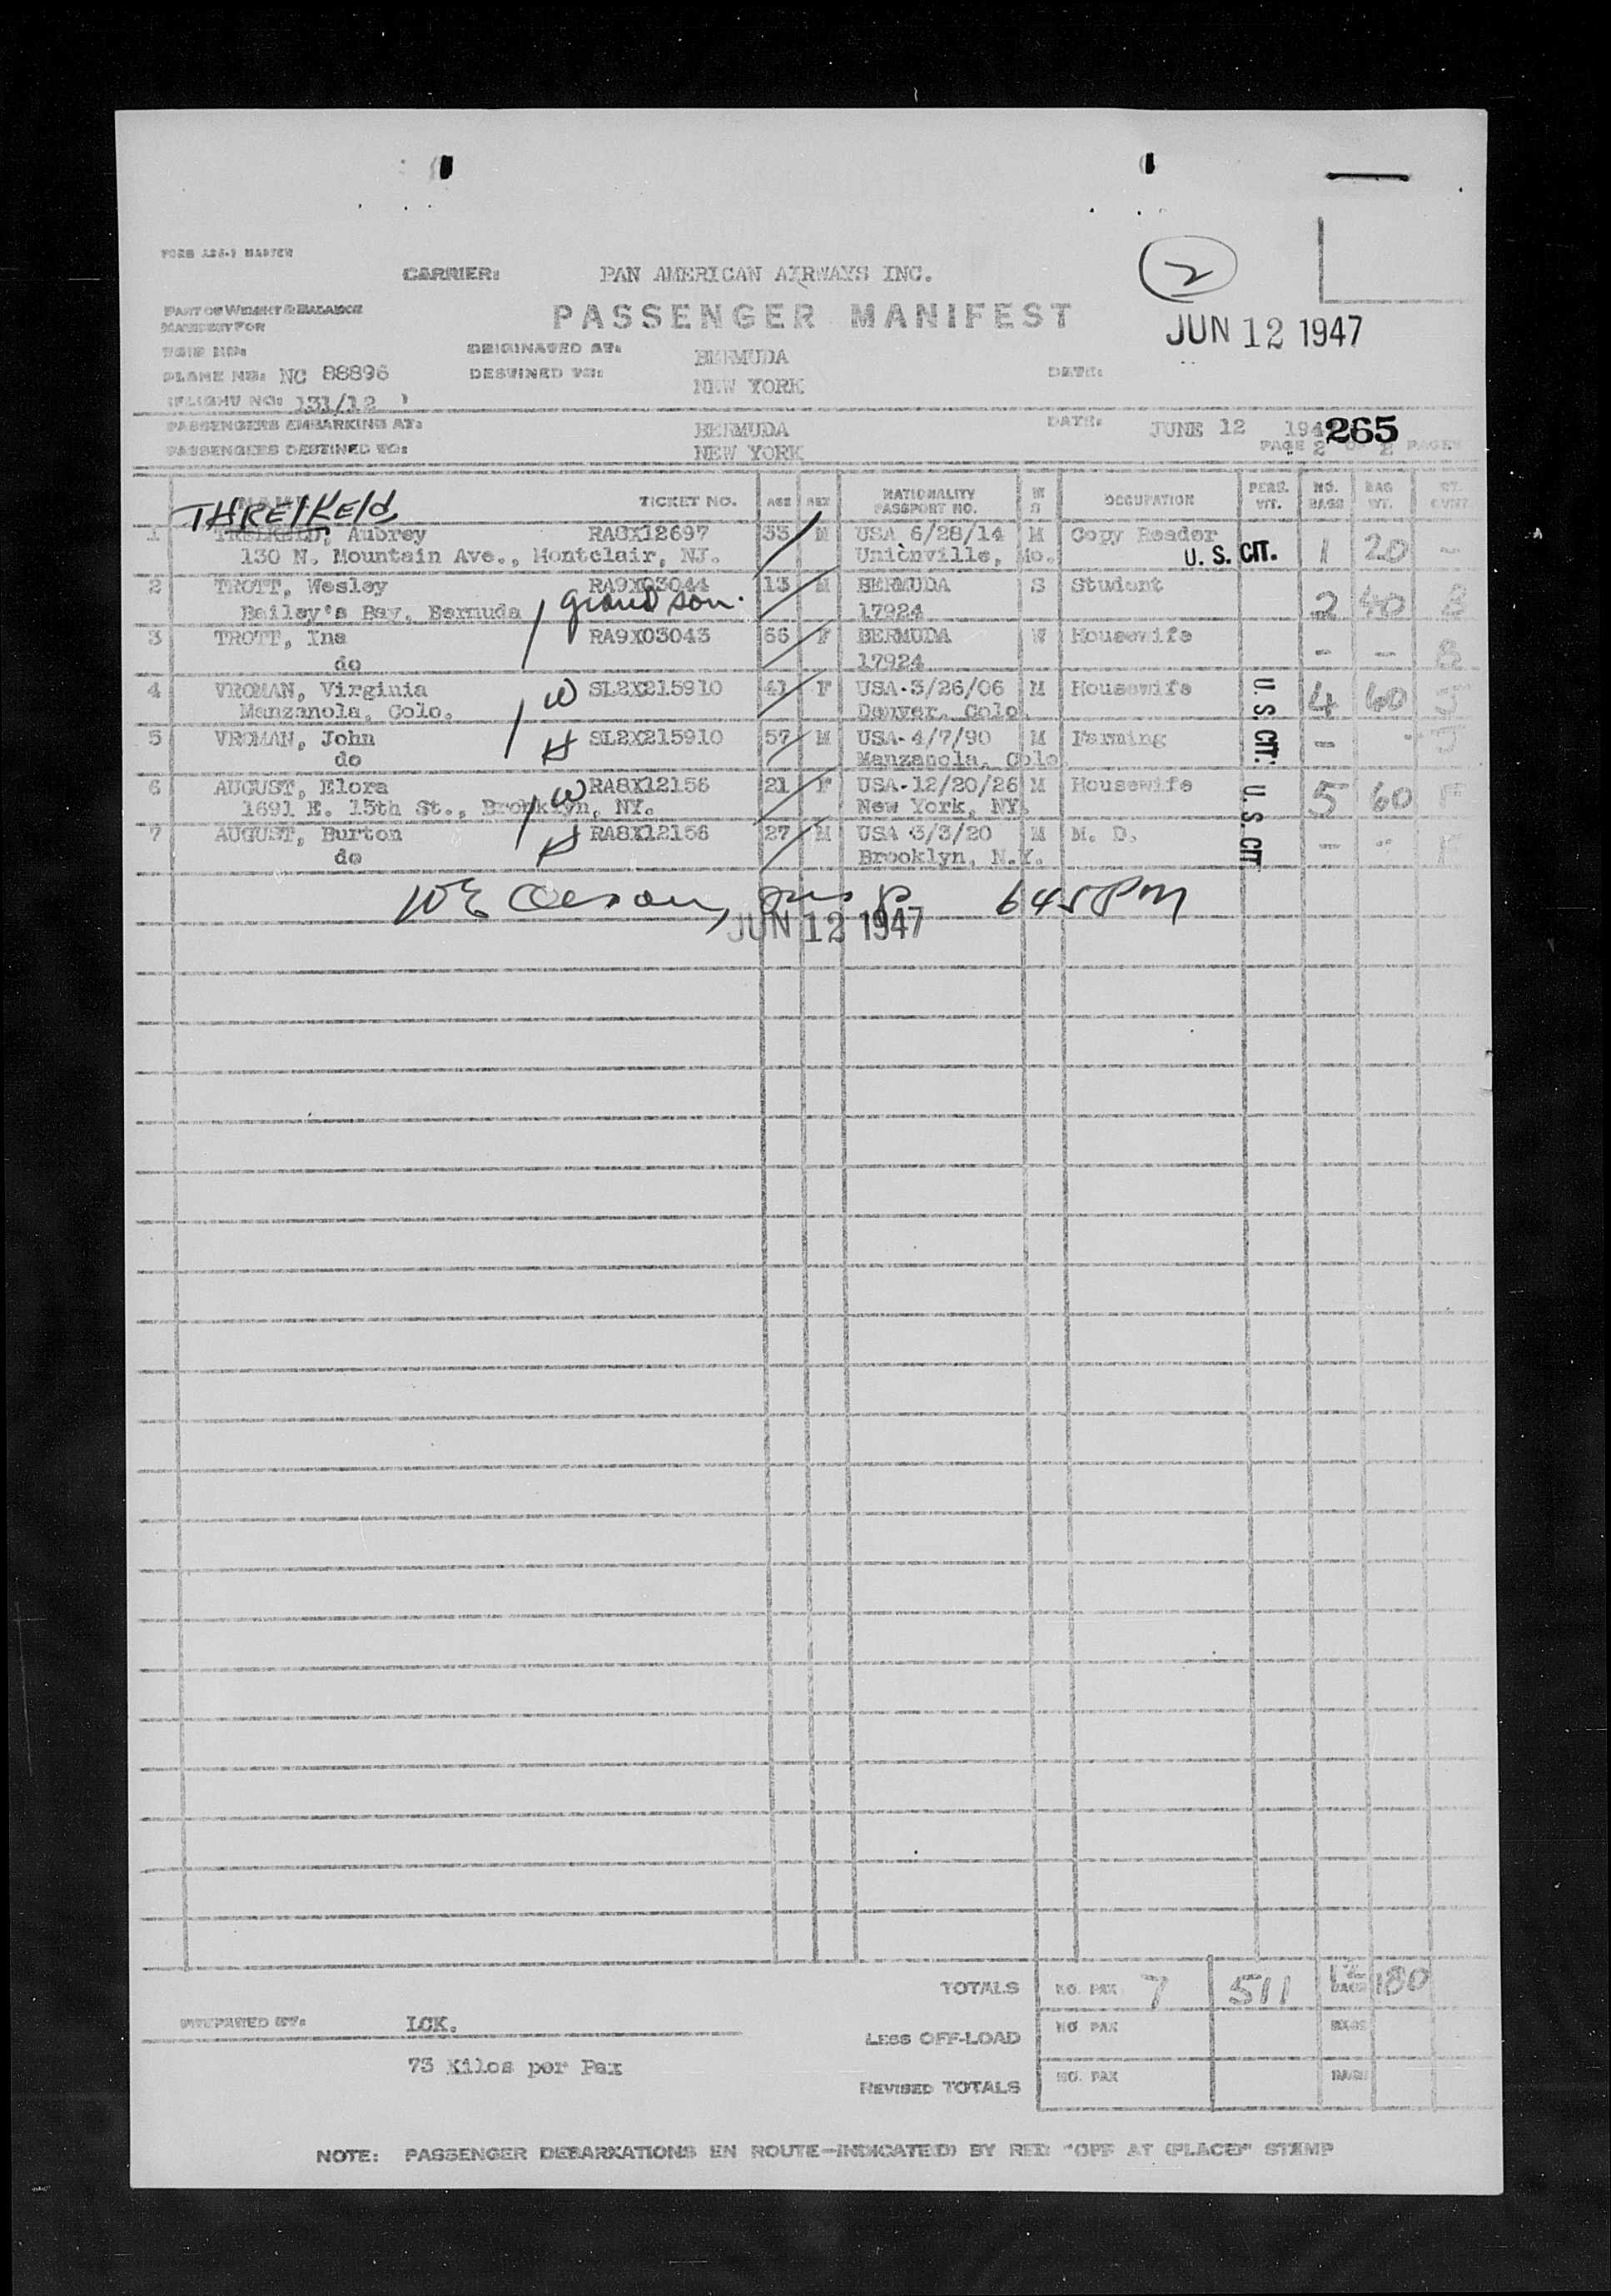 CARRIER: PAN AMERICAN AIRWAYS INC.
2
PART OF WEIGHT & BALANCE
MANIFEST FOR
PASSENGER MANIFEST
JUN 12 1947
TRIP NO:
ORIGINATED AT: BERMUDA
PLANE NO: NC 88896
DESTINED TO: NEW YORK
DATE:
FLIGHT NO: 131/12
PASSENGERS EMBARKING AT: BERMUDA
DATE: JUNE 12 194
265
PASSENGERS DESTINED TO: NEW YORK
PAGE 2 OF 2 PAGES
NAME TICKET NO. AGE SEX NATIONALITY PASSPORT NO. M S OCCUPATION PERS. WT. NO. BAGS BAG WT.
THRElKEld
1 Aubrey RA8X12697 33 M USA 6/28/14 M Copy Reader
130 N. Mountain Ave., Montclair, NJ. Unionville, Mo. U. S. CIT. 1 20 -
2 TROTT, Wesley RA9X03044 13 M BERMUDA S Student
Bailey's Bay, Bermuda grand son. 17924 2 40
3 TROTT, Ina RA9X03043 66 F BERMUDA W Housewife
do 17924 - -
4 VROMAN, Virginia W SL2X215910 41 F USA-3/26/06 M Housewife U. S. CIT. 4 60
Manzanola, Colo. Denver, Colo.
5 VROMAN, John H SL2X215910 57 M USA-4/7/90 M Farming -
do Manzanola, Colo.
6 AUGUST, Elora W RA8X12156 21 F USA-12/20/26 M Housewife U. S. CIT 5 60
1691 E. 15th St., Brooklyn, NY. New York, NY.
7 AUGUST, Burton H RA8X12156 27 M USA 3/3/20 M M. D. - -
do Brooklyn, N.Y.
645PM
JUN 12 1947
TOTALS NO. PAX 7 511 12 BAGS 180
PREPARED BY: LCK.
LESS OFF-LOAD NO. PAX BAGS
73 Kilos per Pax
REVISED TOTALS NO. PAX BAGS
NOTE: PASSENGER DEBARKATIONS EN ROUTE—INDICATE(D) BY RED "OFF AT (PLACE)" STAMP